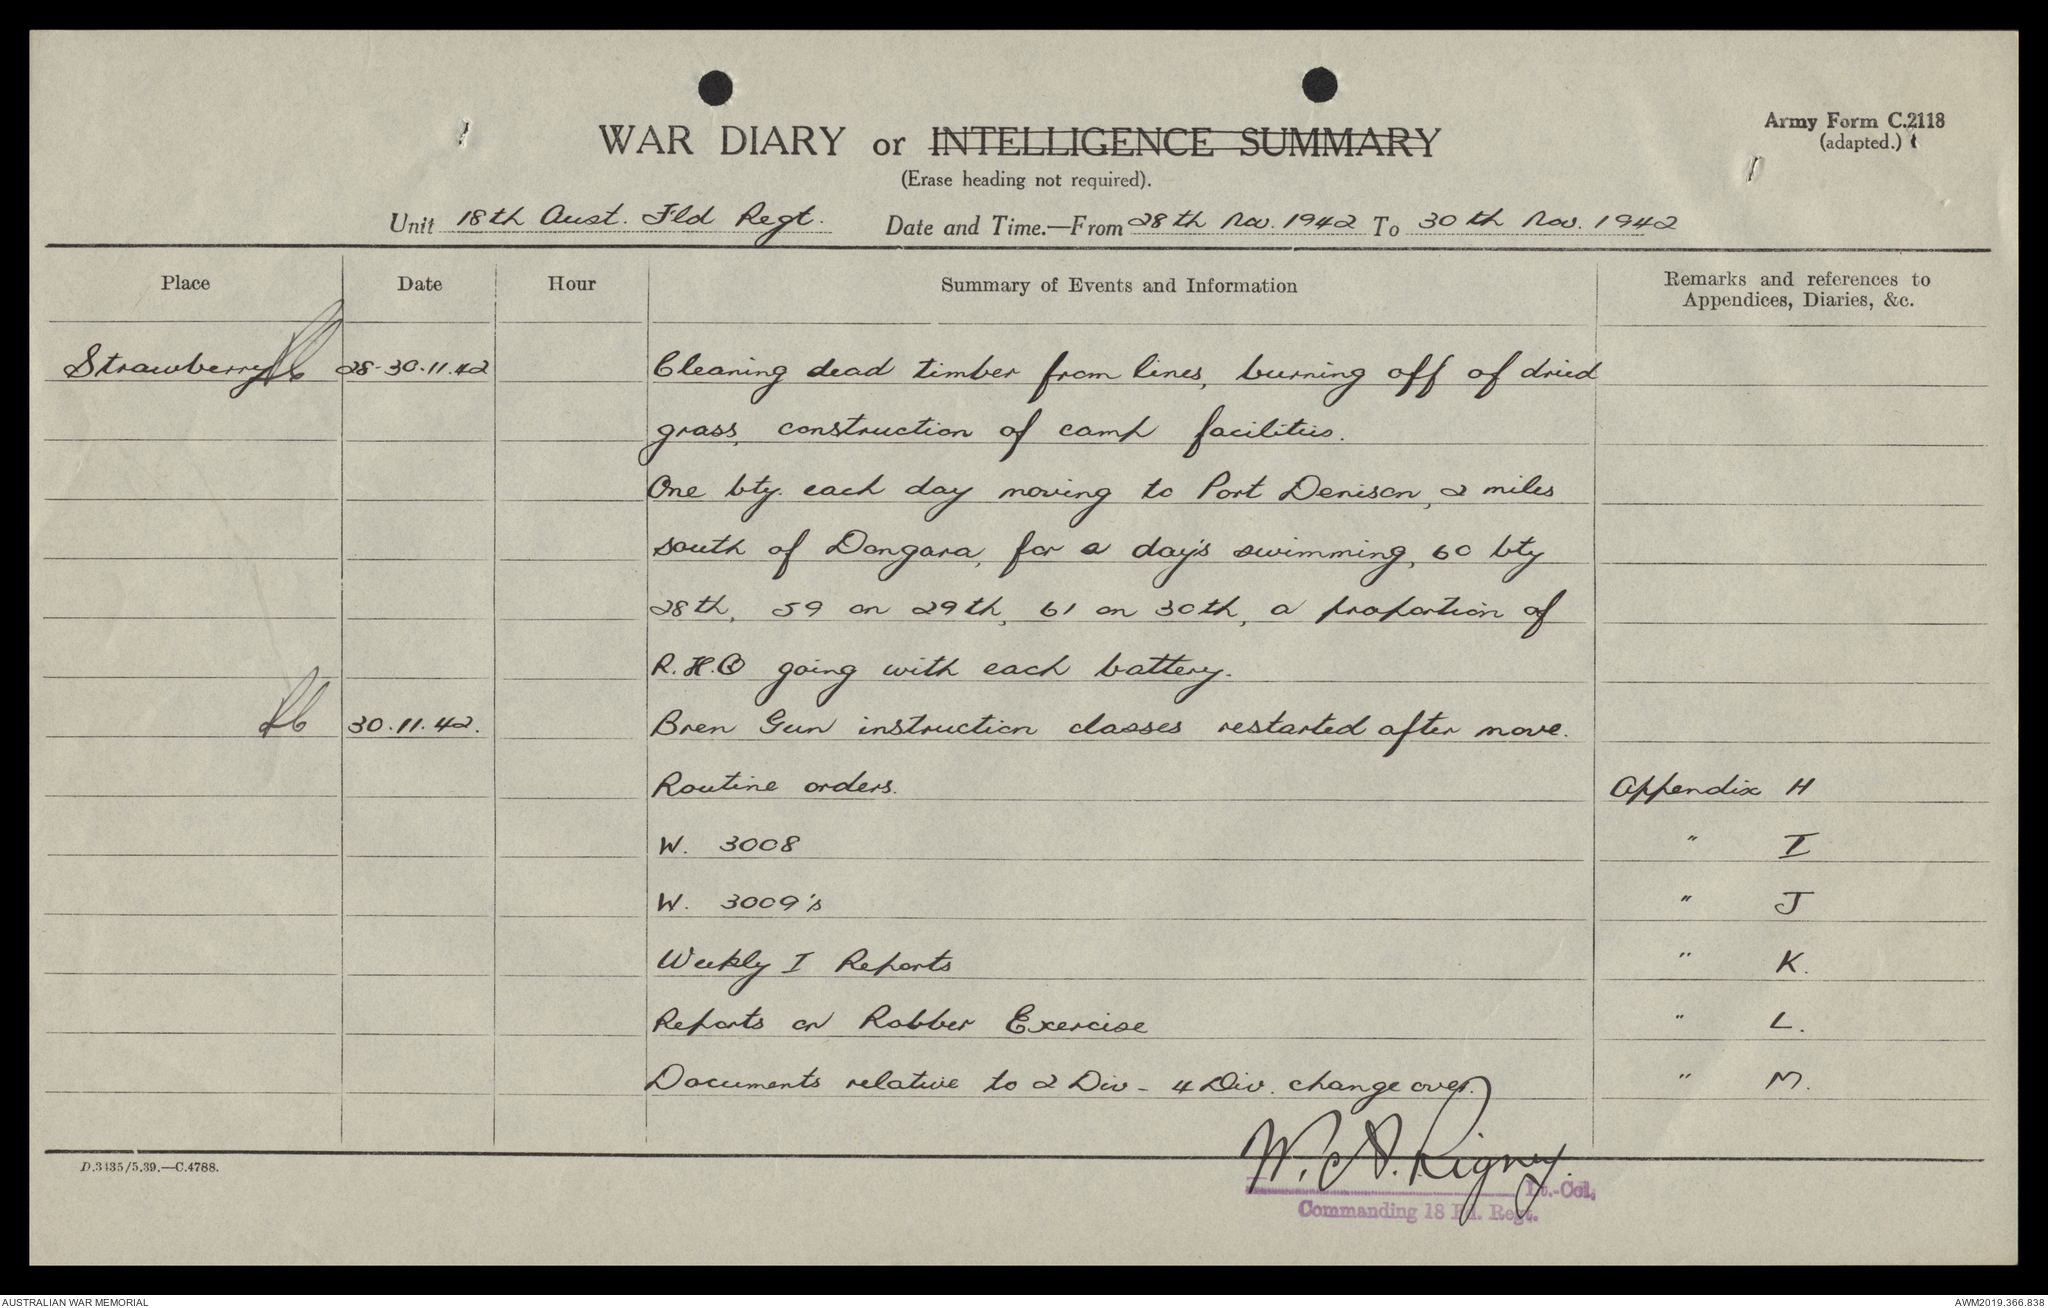 Army Form C.2118
(adapted.)
WAR DIARY or INTELLIGENCE SUMMARY
(Erase heading not required).
Unit 18th Aust. Fld Regt. Date and Time.—From 28th Nov. 1942 To 30th Nov. 1942
Place Date Hour Summary of Events and Information Remarks and references to
Appendices, Diaries, &c.
Strawberry 28-30.11.42 Cleaning dead timber from lines, burning off of dried
grass, construction of camp facilities.
One bty. each day moving to Port Denison, 2 miles
south of Dongara, for a day's swimming, 60 bty
28th, 59 on 29th, 61 on 30th, a proportion of
R.H.Q going with each battery.
30.11.42. Bren Gun instruction classes restarted after move.
Routine orders. Appendix H
W. 3008 " I
W. 3009's " J
Weekly I Reports " K.
Reports on Robber Exercise " L.
Documents relative to 2 Div - 4 Div. change over. " M.
W. A. Rigney.
Lt.-Col.
Commanding 18 Fd. Regt.
D.3435/5.39.—C.4788.
AUSTRALIAN WAR MEMORIAL AWM2019.366.838